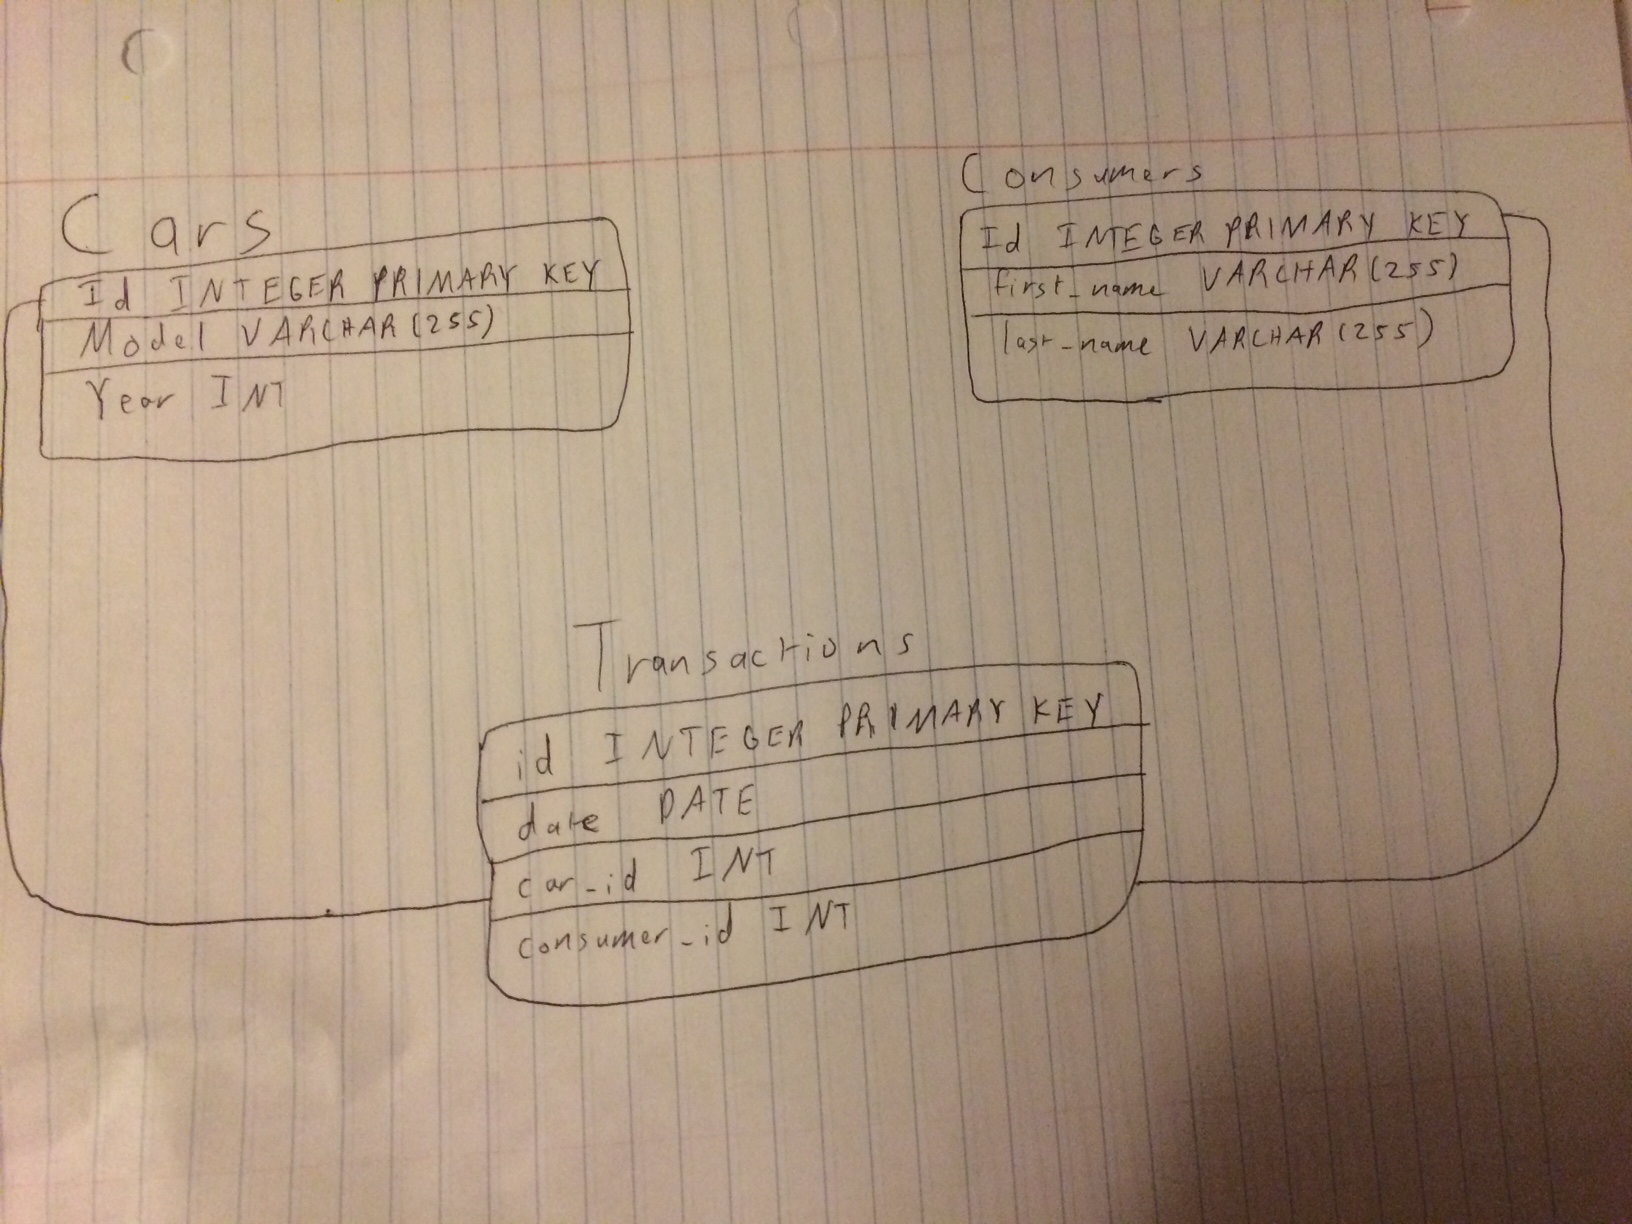 Cars
Id INTEGER PRIMARY KEY
Model VARCHAR(255)
Year INT
Consumers
Id INTEGER PRIMARY KEY
first_name VARCHAR(255)
last_name VARCHAR(255)
Transactions
id INTEGER PRIMARY KEY
date DATE
car_id INT
consumer_id INT